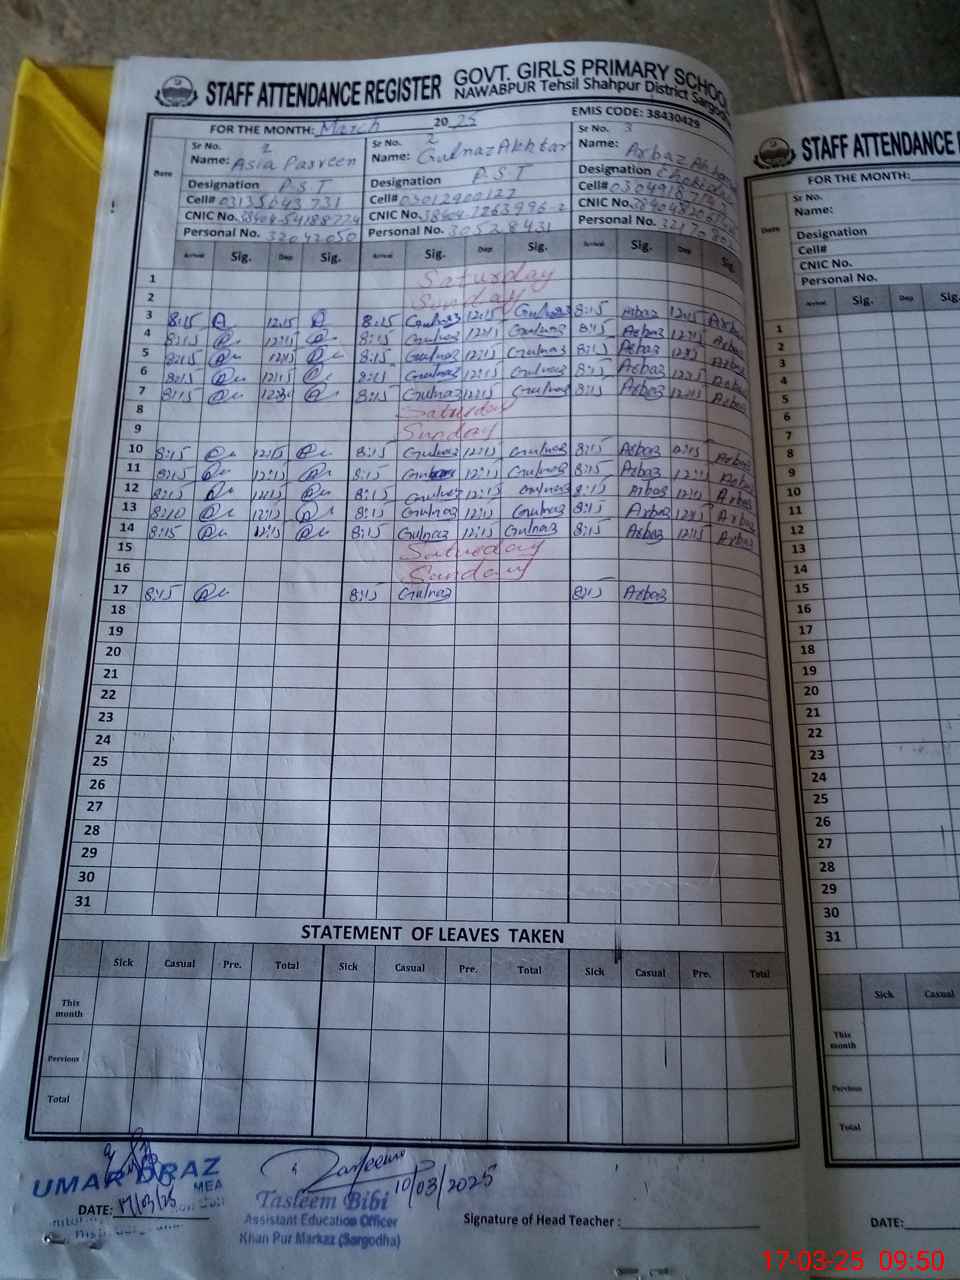 STAFF ATTENDANCE REGISTER GOVT. GIRLS PRIMARY SCHOOL
NAWABPUR Tehsil Shahpur District Sargodha
FOR THE MONTH: March 2025 EMIS CODE: 38430429
Date Sr No. Sr No. 2 Sr No. 3
Name: Asia Parveen Name: Gulnaz Akhtar Name: Arbaz
Designation P.S.T Designation P.S.T Designation
Cell# Cell# 03012900127 Cell#
CNIC No. CNIC No. CNIC No.
Personal No. 32042050 Personal No. 30528431 Personal No.
Arrival Sig. Dep Sig. Arrival Sig. Dep Sig. Arrival Sig. Dep Sig.
1 Saturday
2 Sunday
3 8:15 12:15 8:15 Gulnaz 12:15 Gulnaz 8:15 Arbaz 12:15 Arbaz
4 8:15 12:15 8:15 Gulnaz 12:15 Gulnaz 8:15 Arbaz 12:15 Arbaz
5 8:15 12:15 8:15 Gulnaz 12:15 Gulnaz 8:15 Arbaz Arbaz
6 8:15 12:15 8:15 Gulnaz 12:15 Gulnaz 8:15 Arbaz 12:15 Arbaz
7 8:15 8:15 Gulnaz 12:15 Gulnaz 8:15 Arbaz 12:15 Arbaz
8 Saturday
9 Sunday
10 8:15 12:15 8:15 Gulnaz 12:15 Gulnaz 8:15 Arbaz Arbaz
11 8:15 12:15 8:15 12:15 Gulnaz 8:15 Arbaz 12:15 Arbaz
12 8:15 12:15 8:15 Gulnaz 12:15 Gulnaz 8:15 Arbaz 12:15 Arbaz
13 12:15 8:15 Gulnaz 12:15 Gulnaz 8:15 Arbaz 12:15 Arbaz
14 8:15 12:15 8:15 Gulnaz 12:15 Gulnaz 8:15 Arbaz 12:15 Arbaz
15 Saturday
16 Sunday
17 8:15 8:15 Gulnaz 8:15 Arbaz
18
19
20
21
22
23
24
25
26
27
28
29
30
31
STATEMENT OF LEAVES TAKEN
Sick Casual Pre. Total Sick Casual Pre. Total Sick Casual Pre. Total
This month
Pervious
Total
UMAR DRAZ
MEA
DATE: 17/03/25
Tasleem 10/03/2025
Tasleem Bibi
Assistant Education Officer
Khan Pur Markaz (Sargodha)
Signature of Head Teacher :
STAFF ATTENDANCE
FOR THE MONTH:
Date Sr No.
Name:
Designation
Cell#
CNIC No.
Personal No.
Arrival Sig. Dep Sig.
1
2
3
4
5
6
7
8
9
10
11
12
13
14
15
16
17
18
19
20
21
22
23
24
25
26
27
28
29
30
31
Sick Casual
This month
Pervious
Total
DATE:
17-03-25 09:50